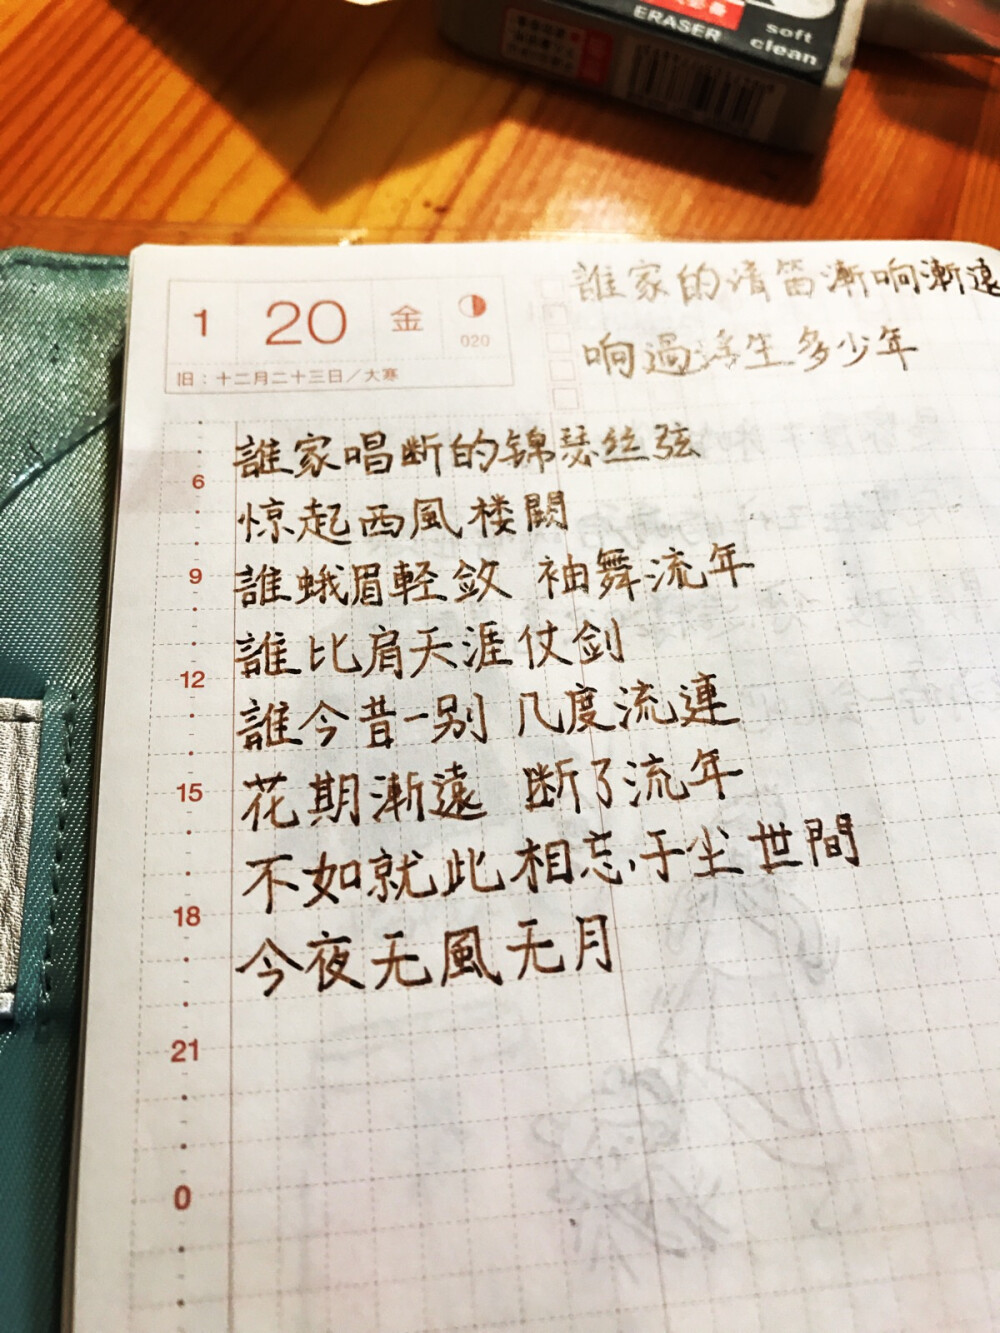 ERASER
soft
clean
1 20 金
020
旧：十二月二十三日／大寒
誰家的清笛漸响漸遠
响過浮生多少年
誰家唱断的锦瑟丝弦
惊起西風楼闕
誰蛾眉輕敛 袖舞流年
誰比肩天涯仗剑
誰今昔一别 几度流連
花期漸遠 断了流年
不如就此相忘于尘世間
今夜无風无月
6
9
12
15
18
21
0